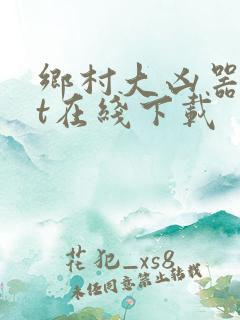 鄉村大凶器
t在綫下載
花犯_xs8
未经同意禁止转载